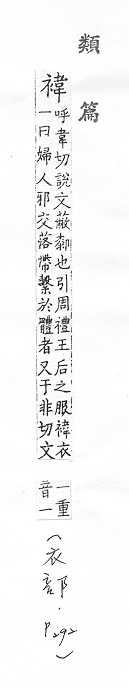 類篇
褘
呼韋切說文蔽厀也引周禮王后之服褘衣
一曰婦人邪交落帶繫於體者又于非切文
一重
音一
(衣部.P292)